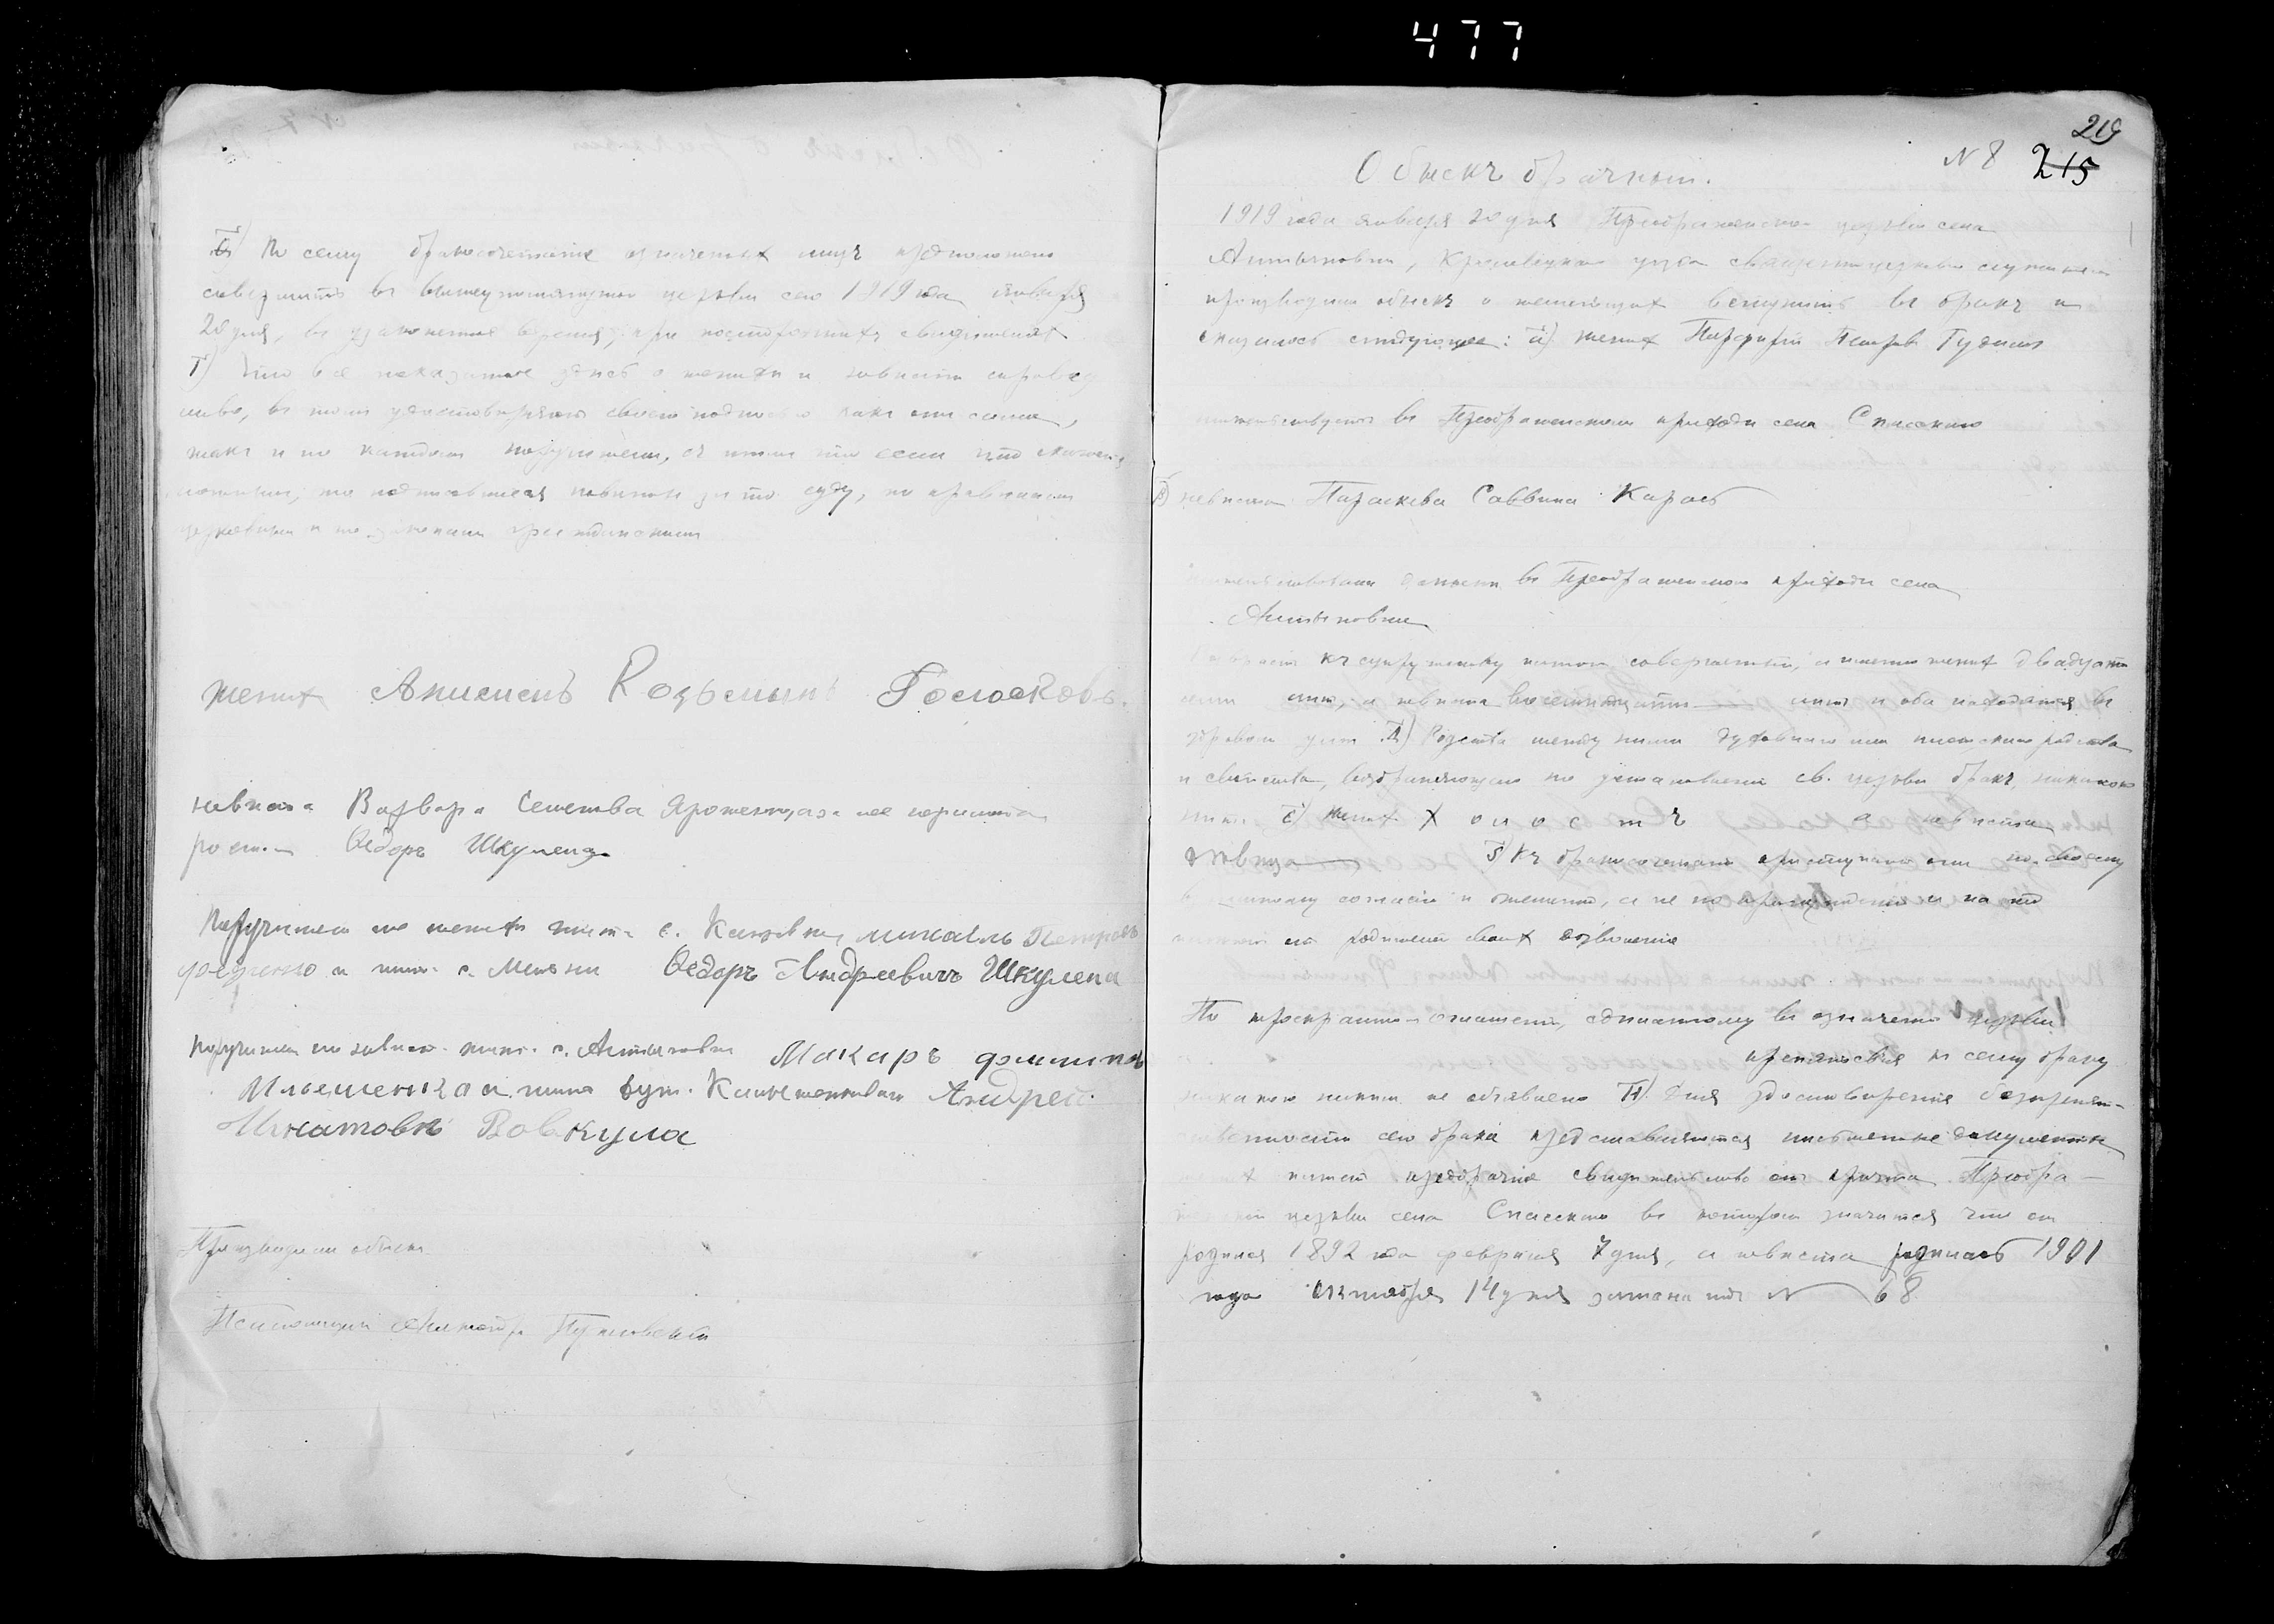 477
І) По сему бракосочетаніе означеныхъ лицъ предположено
совершить въ вышеупомянутой церкви сего 1919 года января
20 дня, въ узаконенное время, при постороннихъ свидѣтеляхъ
І) Что все показанное здѣсь о женихѣ и невѣстѣ справед
ливо, въ томъ удостовѣряютъ своею подписью какъ они сами,
такъ и по каждомъ поручители, съ тѣмъ что если что окажется
ложнымъ, то подписавшіеся повинны за то суду, по правиламъ
церковнымъ и по законамъ гражданскимъ
женихъ Анисимъ Козьминъ Голосковъ.
невѣста Варвара Семенова а за нее неграмотн
росп. Ѳедоръ Шкулепа
Поручители по женихѣ жит. с. Михаилъ Петровъ
и жит. с. Мельни Ѳедоръ Андреевичъ Шкулепа
Поручители по невѣстѣ жит. с. Алтыновки Макаръ
Ильешенко и жит. хут. Андрей
Игнатовъ Вовкула
Производили обыскъ
Псаломщикъ
219
N 8 215
Обыскъ брачный.
1919 года января 20 дня Преображенской церкви села
Алтыновки, Кролевецкаго уѣзда священноцерковно служители
производили обыскъ о желающихъ вступить въ бракъ и
оказалось слѣдующее: а) женихъ Парфирій Петровъ Гудимъ
жительствуетъ въ Преображенскомъ приходѣ села Спасскаго
В) невѣста Параскева Саввина Карась
жительствовала донынѣ въ Преображенскомъ приходѣ села
Алтыновки
Возрастъ къ супружеству имѣютъ совершенный, а именно женихъ двадцати
лѣтъ, а невѣста восемнадцати лѣтъ и оба находятся въ
здравомъ умѣ Д) Родства между ними духовнаго или плотскаго родства
и свойства, возбраняющаго по установленію св. церкви бракъ, никакого
нѣтъ. Е) Женихъ холостъ а невѣста
дѣвица Ѕ) Къ бракосочетанію приступаютъ они по своему
взаимному согласію и желанію, а не по принужденію и на то
имѣютъ отъ родителей своихъ дозволеніе
По троекратному оглашенію, сдѣланному въ означеной церкви
препятствія къ сему браку
никакого никѣмъ не объявлено И) Для удостовѣренія безпрепят-
ственности сего брака представляются письменные документы
женихъ имѣетъ предбрачное свидѣтельство отъ причта Преобра-
женской церкви села Спасскаго въ которомъ значится что онъ
родился 1892 года февраля 7 дня, а невѣста родилась 1901
года октября 14 дня записана подъ N 68